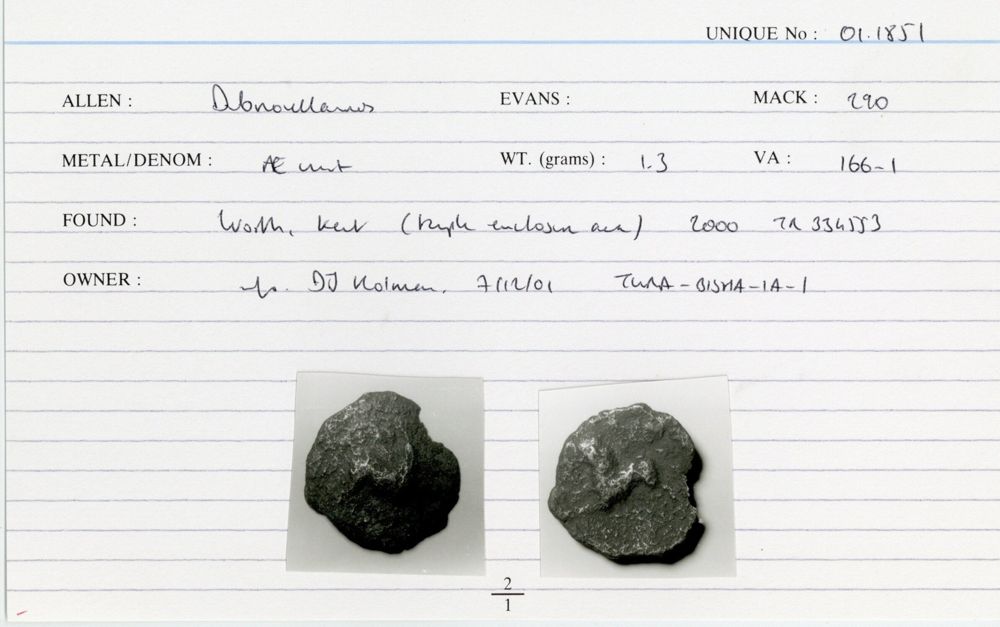 UNIQUE No : 01.1851
ALLEN : Dubnovellaunos EVANS : MACK : 290
METAL/DENOM : Æ unit WT. (grams) : 1.3 VA : 166-1
FOUND : Worth, Kent (triple enclosure area) 2000 TR 334553
OWNER : DJ Holman, 7/12/01
2
1